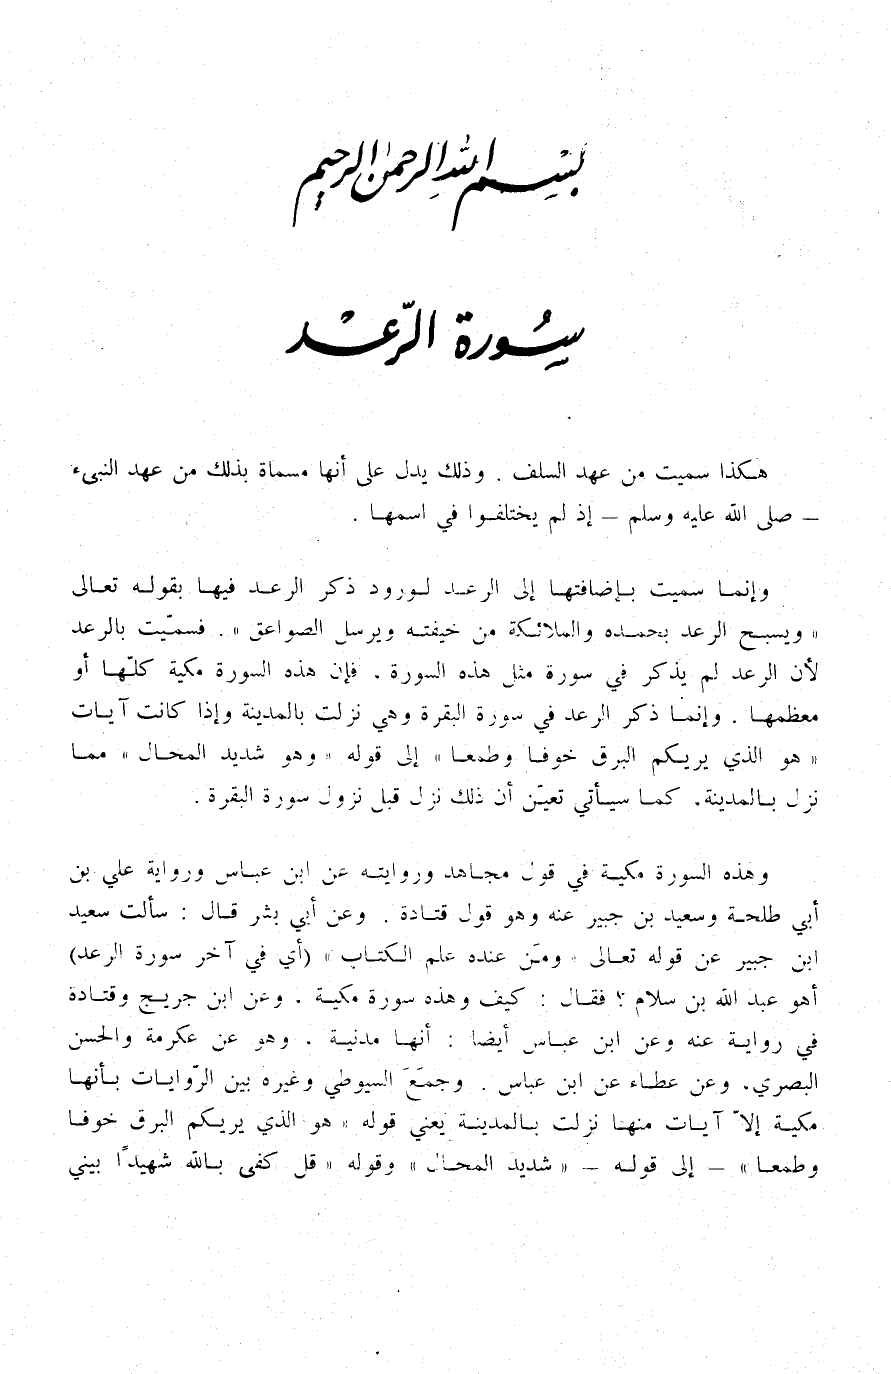 بسم الله الرحمن الرحيم
سُورة الرّعْد
هكذا سميت من عهد السلف . وذلك يدل على أنها مسماة بذلك من عهد النبيء
– صلى الله عليه وسلم – إذ لم يختلفوا في اسمها .
وإنما سميت بإضافتها إلى الرعد لورود ذكر الرعد فيها بقوله تعالى
« ويسبح الرعد بحمده والملائكة من خيفته ويرسل الصواعق » . فسمّيت بالرعد
لأن الرعد لم يذكر في سورة مثل هذه السورة . فإن هذه السورة مكية كلّها أو
معظمها . وإنما ذكر الرعد في سورة البقرة وهي نزلت بالمدينة وإذا كانت آيات
« هو الذي يريكم البرق خوفا وطمعا » إلى قوله « وهو شديد المحال » مما
نزل بالمدينة. كما سيأتي تعيّن أن ذلك نزل قبل نزول سورة البقرة .
وهذه السورة مكية في قول مجاهد وروايته عن ابن عباس ورواية علي بن
أبي طلحة وسعيد بن جبير عنه وهو قول قتادة . وعن أبي بشر قال : سألت سعيد
ابن جبير عن قوله تعالى « ومَن عنده علم الكتاب » (أي في آخر سورة الرعد)
أهو عبد الله بن سلام ؟ فقال : كيف وهذه سورة مكية . وعن ابن جريج وقتادة
في رواية عنه وعن ابن عباس أيضا : أنها مدنية . وهو عن عكرمة والحسن
البصري. وعن عطاء عن ابن عباس . وجمَعَ السيوطي وغيره بين الرّوايات بأنها
مكية إلاّ آيات منها نزلت بالمدينة يعني قوله « هو الذي يريكم البرق خوفا
وطمعا » – إلى قوله – « شديد المحال » وقوله « قل كفى بالله شهيدًا بيني